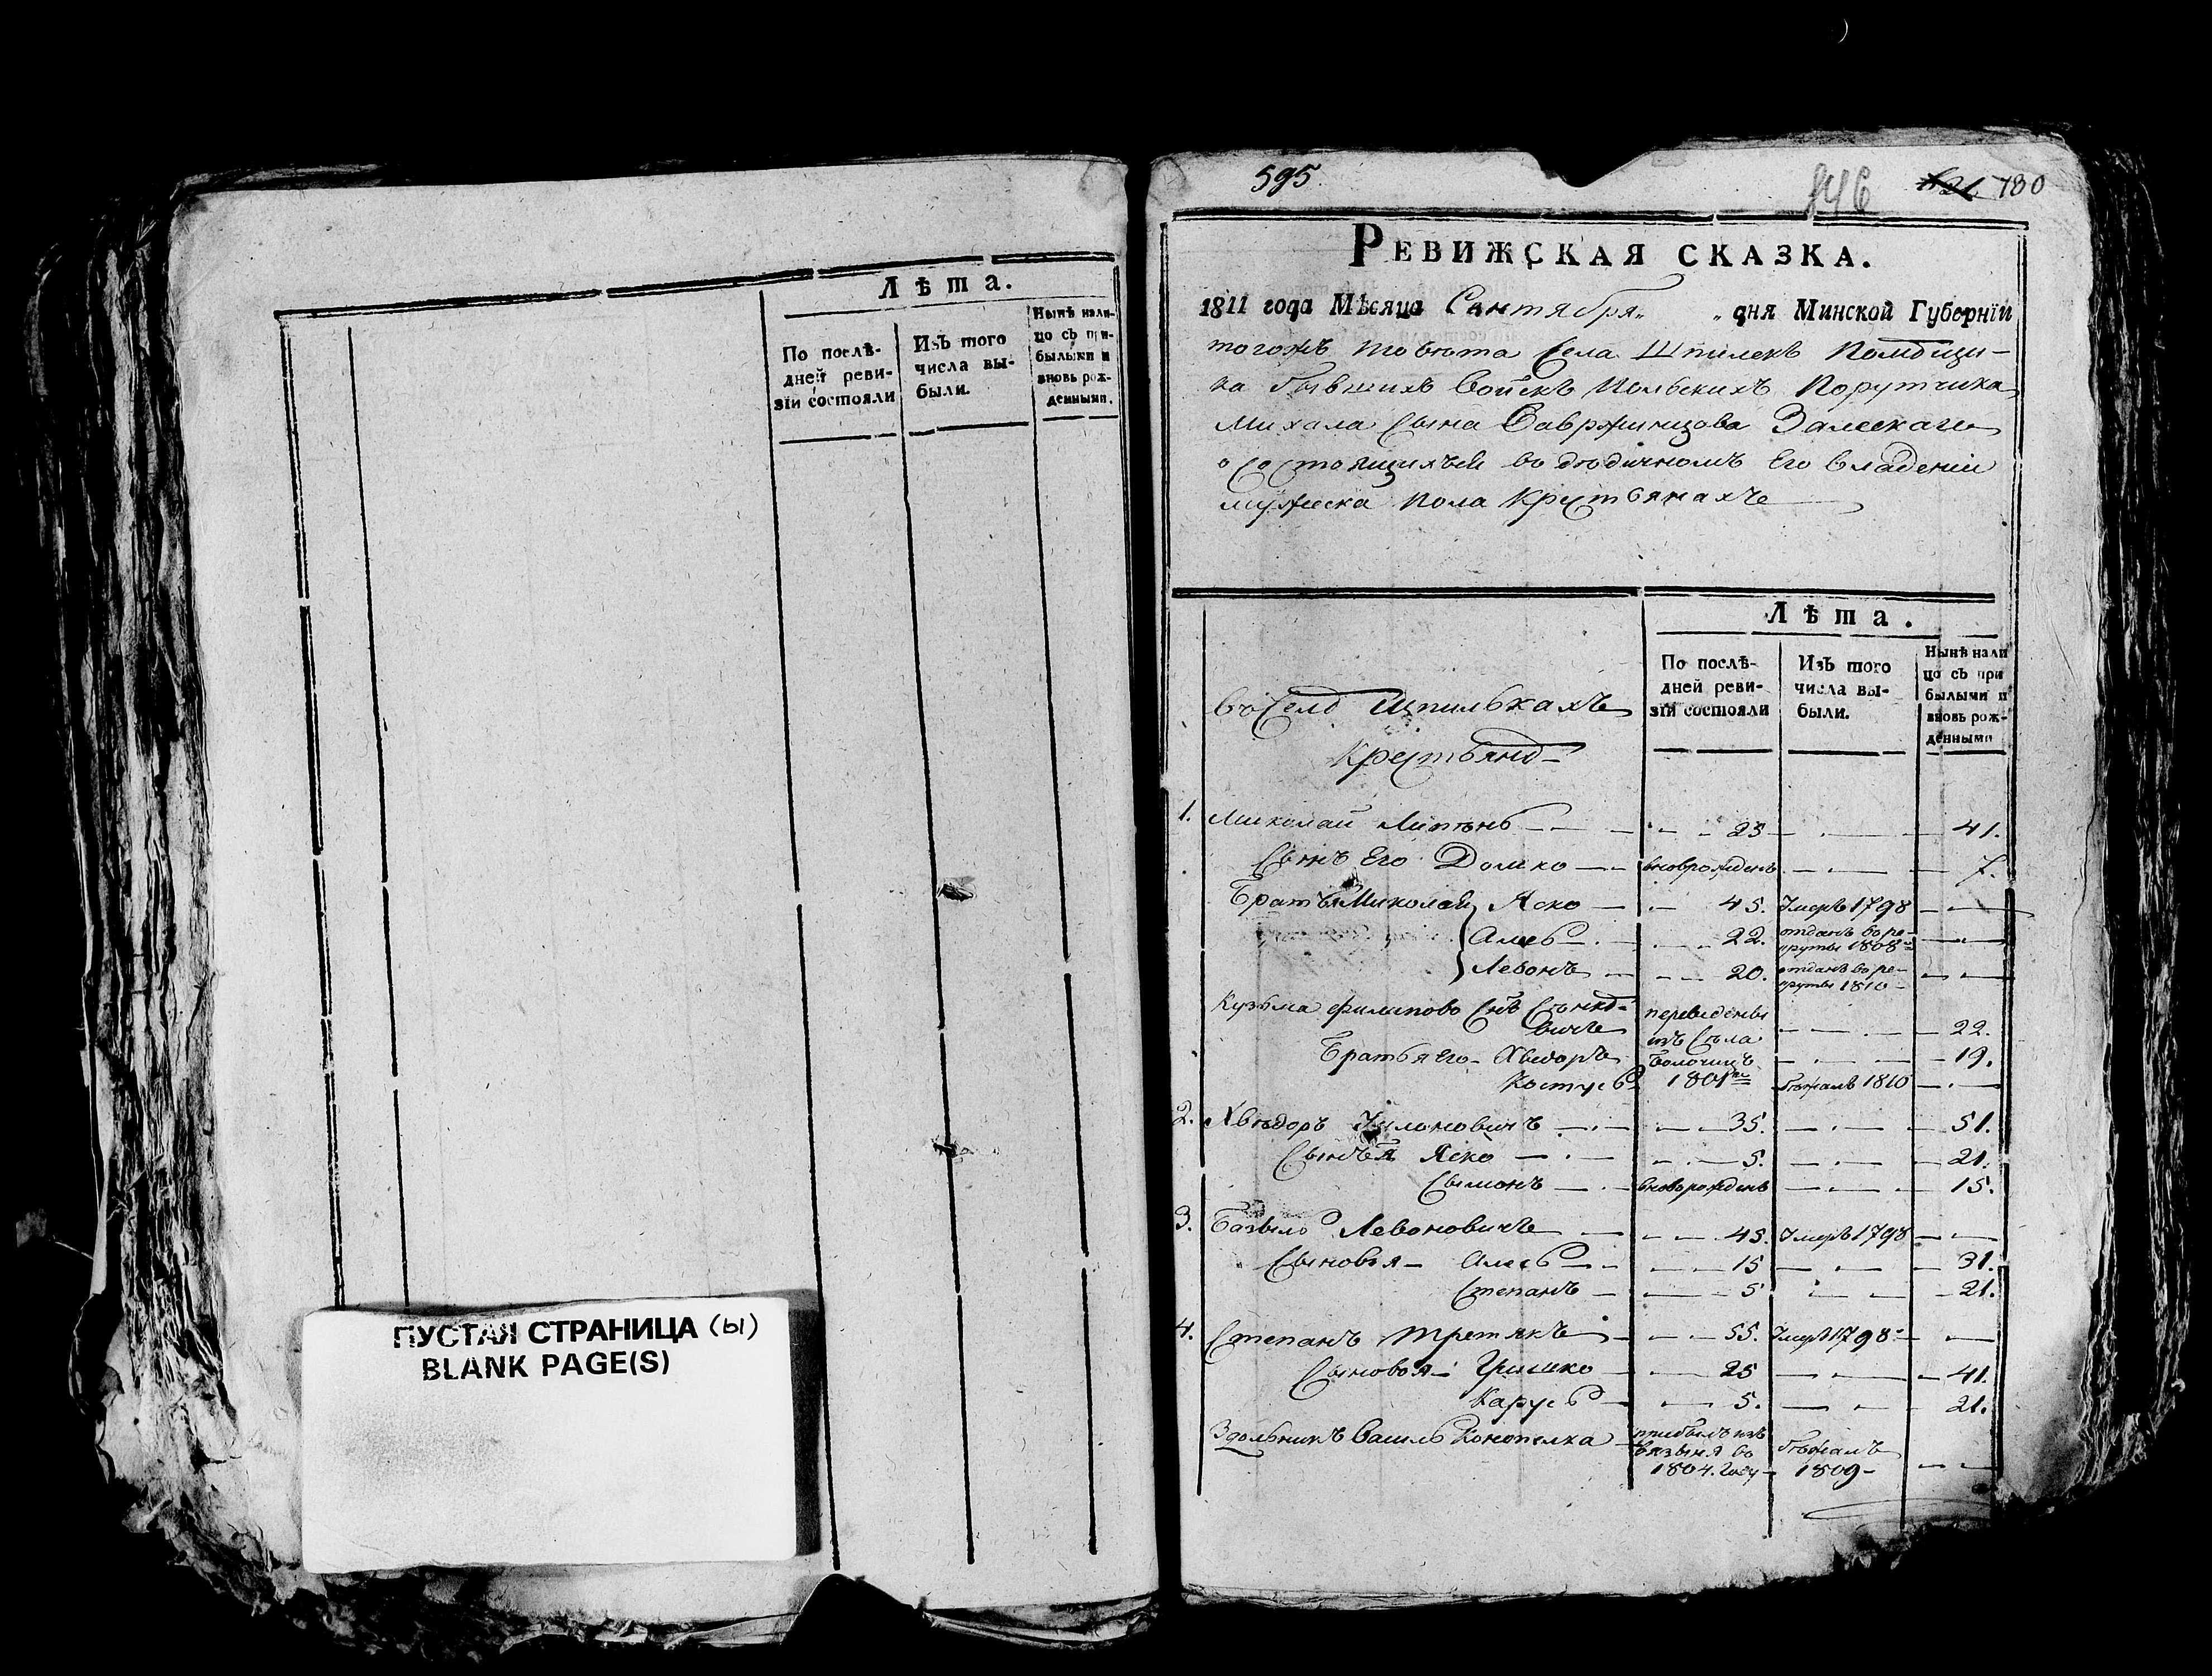 Лѣта.
По послѣ-
дней реви-
зїи состояли
Изъ того
числа вы-
были.
Нынѣ нали-
цо съ при-
былыми и
вновь рож-
денными.
ПУСТАЯ СТРАНИЦА (ы)
BLANK PAGE(S)
595
846
780
РЕВИЖСКАЯ СКАЗКА.
1811 года Мѣсяца Сентября „ дня Минской Губернїи
тогожъ Повѣта Села Шпилекъ Помѣщи-
ка бывшихъ Войскъ Польскихъ Порутчика
Михала Сына Вавржинцова Залескаго
о состоящихъ въ дѣдичномъ Его владеніи
мужеска пола Крестьянахъ
Лѣта.
По послѣ-
дней реви-
зїи состояли
Изъ того
числа вы-
были.
Нынѣ нали
цо съ при
былыми и
вновь рож-
денными
въ Селѣ Шпилькахъ
Крестьянѣ
1. Миколай 25 41.
Сынъ Его Домко вноврожденъ 7.
Братья Миколая Яско 45. Умеръ 1798
Алесь 22. отданъ въ ре-
круты 1808
Левонъ 20. отданъ въ ре-
круты 1810
Кузьма Филипово Снъ
вичъ переведены 22.
Братья Его Хведоръ изъ Села 19.
Костусь 1801 бѣжалъ 1810
2. Хвѣдоръ 35. 51.
Яско 5. 21.
Сымонъ вновьрожденъ 15.
3. Базыль Левоновичъ 45. Умеръ 1798
Сыновья Алесь 15 31.
Степанъ 5 21.
4. Степанъ Третякъ 55. Умеръ 1798
Сыновья Гришко 25 41.
Карусь 5. 21.
Здольникъ Василь Конопелка прибылъ изъ
Вязыня въ бѣжалъ
1804. Году 1809